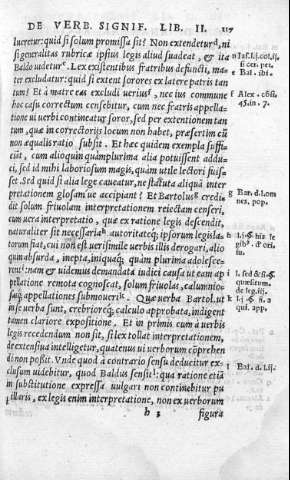 DE VERB. SIGNIF. LIB. II. 117
lueretur: quid si solum promissa sit? Non extenderturᵈ, ni
si generalitas rubricæ ipsius legis aliud suadeat, & ita
Baldo uideturᵉ. Lex existentibus fratribus defuncti, ma-
ter excludatur: quid si extent sorores ex latere patris tan
tum? Et à matre as excludi uerius, nec ius commune
hoc casu correctum censebitur, cum nec fratris appella-
tione ui uerbi contineatur soror, sed per extentionem tan
tum, quæ in correctorijs locum non habet, præsertim cũ
non æqualis ratio subsit. Et hæc quidem exempla suffi-
ciant, cum alioquin quamplurima alia potuissent addu-
ci, sed id mihi laboriosum magis, quàm utile lectori fuis-
set. Sed quid si alia lege caueatur, ne statuta aliquã inter
pretationem glosam ue accipiant? Et Bartolusᵍ credi-
dit solum friuolam interpretationem reiectam censeri,
cum uera interpretatio, quæ ex legis descendit,
naturaliter sit necessariaʰ autoritateq́; ipsorum legisla-
torum fiat, cui non est uerisimile uerbis illis derogari, alio
quin absurda, inepta, iniquaq́; quàm plurima adolesce-
rentⁱ: nam & uidemus demandata iudici causa ut eam ap
pellatione remota cognoscat, solum friuolas, calumnio-
sasq́; appellationes submoueriᵏ. Quæ uerba Bartol. ut
ius uerba sunt, crebrioreq́; calculo approbata, indigent
tamen clariore expositione. Et in primis cum à uerbis
legis recedendum non sit, si lex tollat interpretationem,
de extensiua intelligetur, quatenus ui uerborum cõprehen
di non possit. Vnde quod à contrario sensu deducitur ex-
clusum uidebitur, quod Baldus sensitˡ: qua ratione etiã
in substitutione expressa uulgari non continebitur pu
pillaris, ex legis enim interpretatione, non ex uerborum
h 3 figura
e Bal. ibi
f Alex. cõsi.
45. in. 7.
g Bar. d. l. om
nes, pop.